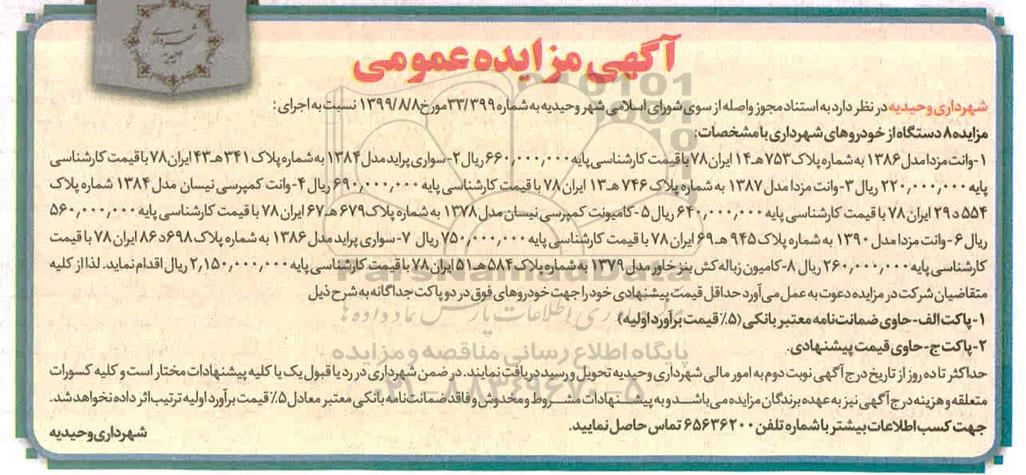 آگهی مزایده عمومی
شهرداری وحیدیه در نظر دارد به استناد مجوز واصله از سوی شورای اسلامی شهر وحیدیه به شماره ۳۳/۳۹۹ مورخ ۱۳۹۹/۸/۸ نسبت به اجرای :
مزایده ۸ دستگاه از خودروهای شهرداری با مشخصات:
۱- وانت مزدا مدل ۱۳۸۶ به شماره پلاک ۷۵۳ هـ ۱۴ ایران ۷۸ با قیمت کارشناسی پایه ۶۶۰,۰۰۰,۰۰۰ ریال ۲- سواری پراید مدل ۱۳۸۴ به شماره پلاک ۳۴۱ هـ ۴۳ ایران ۷۸ با قیمت کارشناسی
پایه ۲۲۰,۰۰۰,۰۰۰ ریال ۳- وانت مزدا مدل ۱۳۸۷ به شماره پلاک ۷۴۶ هـ ۱۳ ایران ۷۸ با قیمت کارشناسی پایه ۶۹۰,۰۰۰,۰۰۰ ریال ۴- وانت کمپرسی نیسان مدل ۱۳۸۴ شماره پلاک
۵۵۴ د ۲۹ ایران ۷۸ با قیمت کارشناسی پایه ۶۴۰,۰۰۰,۰۰۰ ریال ۵- کامیونت کمپرسی نیسان مدل ۱۳۷۸ به شماره پلاک ۶۷۹ هـ ۶۷ ایران ۷۸ با قیمت کارشناسی پایه ۵۶۰,۰۰۰,۰۰۰
ریال ۶- وانت مزدا مدل ۱۳۹۰ به شماره پلاک ۹۴۵ هـ ۶۹ ایران ۷۸ با قیمت کارشناسی پایه ۷۵۰,۰۰۰,۰۰۰ ریال ۷- سواری پراید مدل ۱۳۸۶ به شماره پلاک ۶۹۸ د ۸۶ ایران ۷۸ با قیمت
کارشناسی پایه ۲۶۰,۰۰۰,۰۰۰ ریال ۸- کامیون زباله کش بنز خاور مدل ۱۳۷۹ به شماره پلاک ۵۸۴ هـ ۵۱ ایران ۷۸ با قیمت کارشناسی پایه ۲,۱۵۰,۰۰۰,۰۰۰ ریال اقدام نماید. لذا از کلیه
متقاضیان شرکت در مزایده دعوت به عمل می آورد حداقل قیمت پیشنهادی خود را جهت خودروهای فوق در دو پاکت جداگانه به شرح ذیل
۱- پاکت الف- حاوی ضمانت نامه معتبر بانکی (۵٪ قیمت برآورد اولیه)
۲- پاکت ج- حاوی قیمت پیشنهادی.
حداکثر تا ده روز از تاریخ درج آگهی نوبت دوم به امور مالی شهرداری وحیدیه تحویل و رسید دریافت نمایند. در ضمن شهرداری در رد یا قبول یک یا کلیه پیشنهادات مختار است و کلیه کسورات
متعلقه و هزینه درج آگهی نیز به عهده برندگان مزایده می باشد و به پیشنهادات مشروط و مخدوش و فاقد ضمانت نامه بانکی معتبر معادل ۵٪ قیمت برآورد اولیه ترتیب اثر داده نخواهد شد.
جهت کسب اطلاعات بیشتر با شماره تلفن ۶۵۶۳۶۲۰۰ تماس حاصل نمایید.
شهرداری وحیدیه
ParsNamadData
پایگاه اطلاع رسانی مناقصه و مزایده
۰۲۱-۸۸۳۴۹۶۷۰-۵